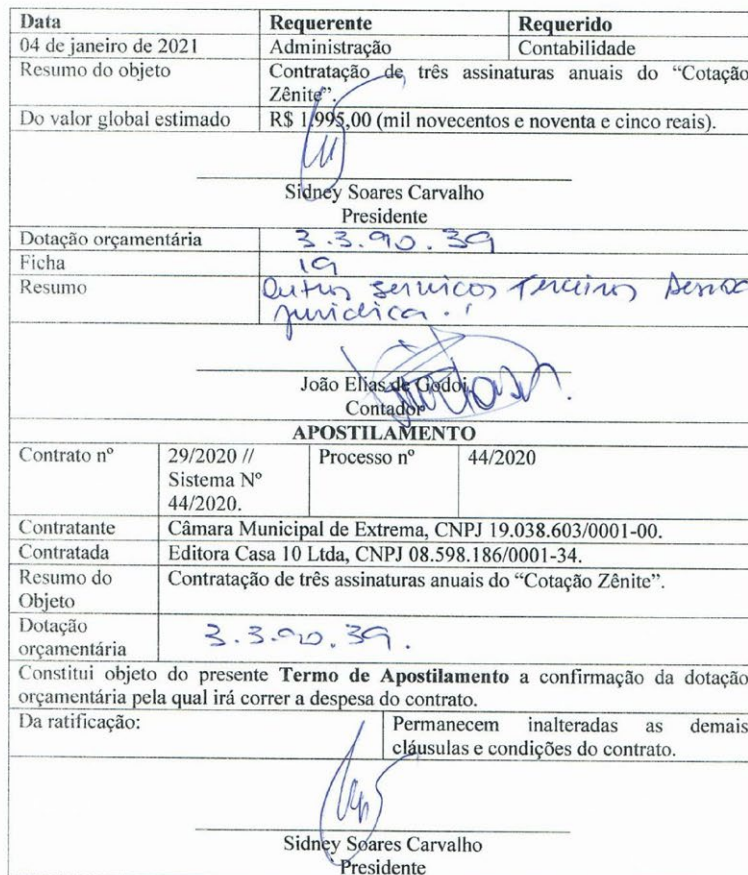 Data Requerente Requerido
04 de janeiro de 2021 Administração Contabilidade
Resumo do objeto Contratação de três assinaturas anuais do “Cotação
Zênite”.
Do valor global estimado R$ 1.995,00 (mil novecentos e noventa e cinco reais).
Sidney Soares Carvalho
Presidente
Dotação orçamentária 3.3.90.39
Ficha 19
Resumo Outros serviços Terceiros
juridica.
João Elias de Godoi
Contador
APOSTILAMENTO
Contrato nº 29/2020 // Processo nº 44/2020
Sistema Nº
44/2020.
Contratante Câmara Municipal de Extrema, CNPJ 19.038.603/0001-00.
Contratada Editora Casa 10 Ltda, CNPJ 08.598.186/0001-34.
Resumo do Contratação de três assinaturas anuais do “Cotação Zênite”.
Objeto
Dotação
orçamentária 3.3.90.39.
Constitui objeto do presente Termo de Apostilamento a confirmação da dotação
orçamentária pela qual irá correr a despesa do contrato.
Da ratificação: Permanecem inalteradas as demais
cláusulas e condições do contrato.
Sidney Soares Carvalho
Presidente